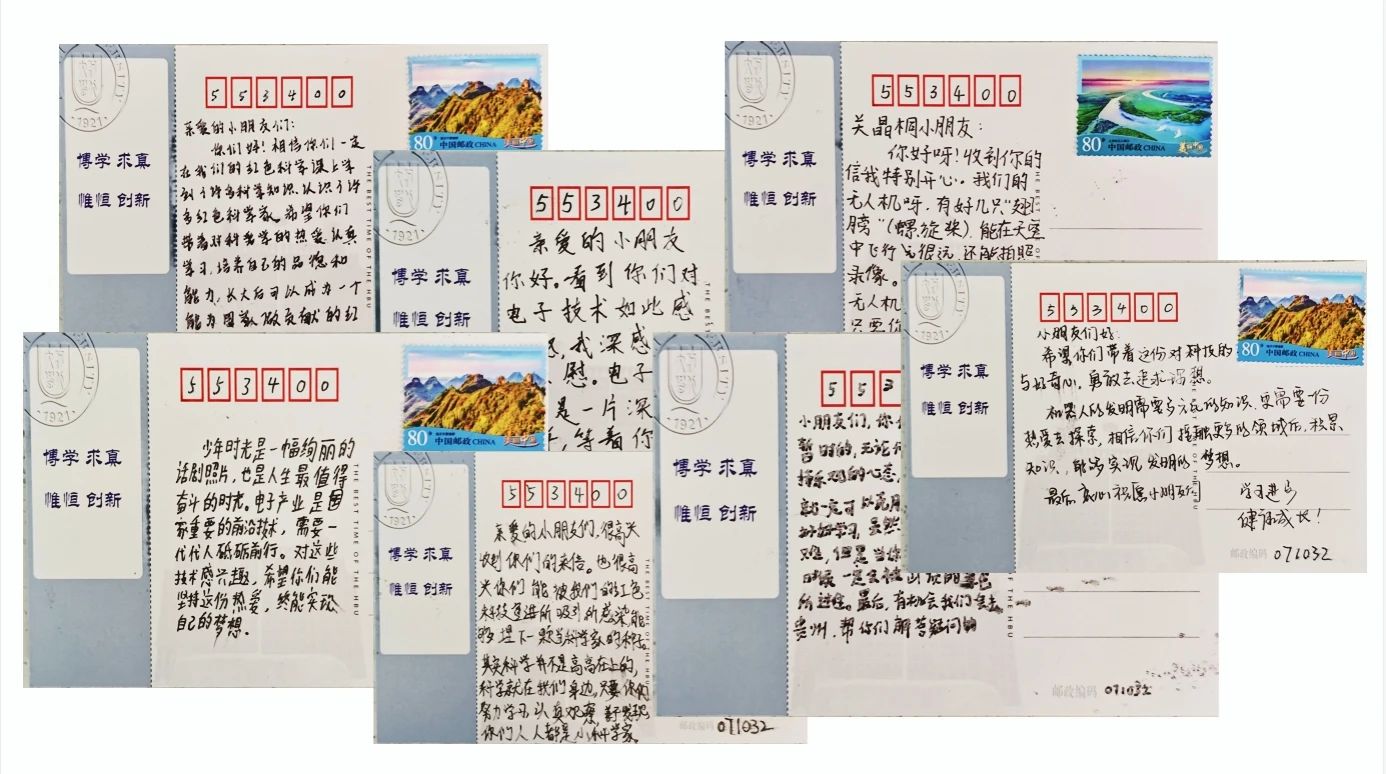 1921
博学 求真
惟恒 创新
553400
80 中国邮政 CHINA
亲爱的小朋友们:
你们好!相信你们一定
在我们的红色科学课上学
到了许多科学知识、认识了许
多红色科学家。希望你们
带着对科学的热爱认真
学习,培养自己的品德和
能力,长大后可以成为一个
THE BEST TIME OF THE HBU
1921
博学 求真
惟恒 创新
553400
亲爱的小朋友
你好。看到你们对
电子技术如此感
我深感
慰。电子
是一片深
等着你
1921
博学 求真
惟恒 创新
553400
80 中国邮政 CHINA
关晶桐小朋友:
你好呀!收到你的
信我特别开心。我们的
无人机呀,有好几只“翅
膀”(螺旋桨),能在天空
中飞行
很远,还能拍照
录像。
无人机
只要你
553400
80 中国邮政 CHINA
小朋友们好:
希望你们带着这份对科技的
与好奇心,勇敢去追求梦想。
机器人的发明需要多方面的知识,更需要一份
热爱去探索,相信你们接触更多的领域后,积累
知识,能够实现发明的梦想。
最后,我们祝愿小朋友们
学习进步
健康成长!
邮政编码 071032
博学 求真
惟恒 创新
1921
博学 求真
惟恒 创新
553400
80 中国邮政 CHINA
少年时光是一幅绚丽的
话剧照片,也是人生最值得
奋斗的时光。电子产业是国
家重要的前沿技术,需要一
代代人砥砺前行。对这些
技术感兴趣,希望你们能
坚持这份热爱,终能实现
自己的梦想。
THE BEST TIME OF THE HBU
1921
博学 求真
惟恒 创新
553400
亲爱的小朋友们,很高兴
收到你们的来信。也很高
兴你们能被我们的红色
科技
所吸引所感染,能
够埋下一颗当科学家的种子。
其实科学并不是高高在上的,
科学就在我们身边,只要你们
努力学习,认真观察,
你们人人都是小科学家
邮政编码 071032
1921
博学 求真
惟恒 创新
553
小朋友们,你
暂时的,无论
好好学习,虽然
难,但是当你
所过往。最后,有机会我们会去
贵州,帮你们解答疑问
THE HBU
邮政编码 071032